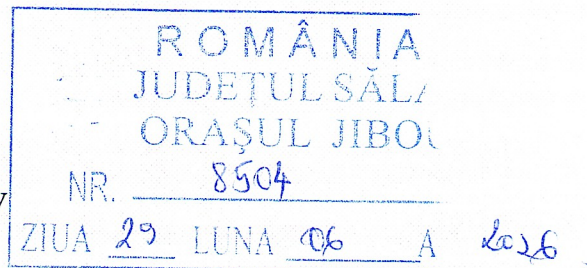 ROMÂNIA
JUDEŢUL SĂLA
ORAŞUL JIBOU
NR. 8504
ZIUA 29 LUNA 06 A 2026